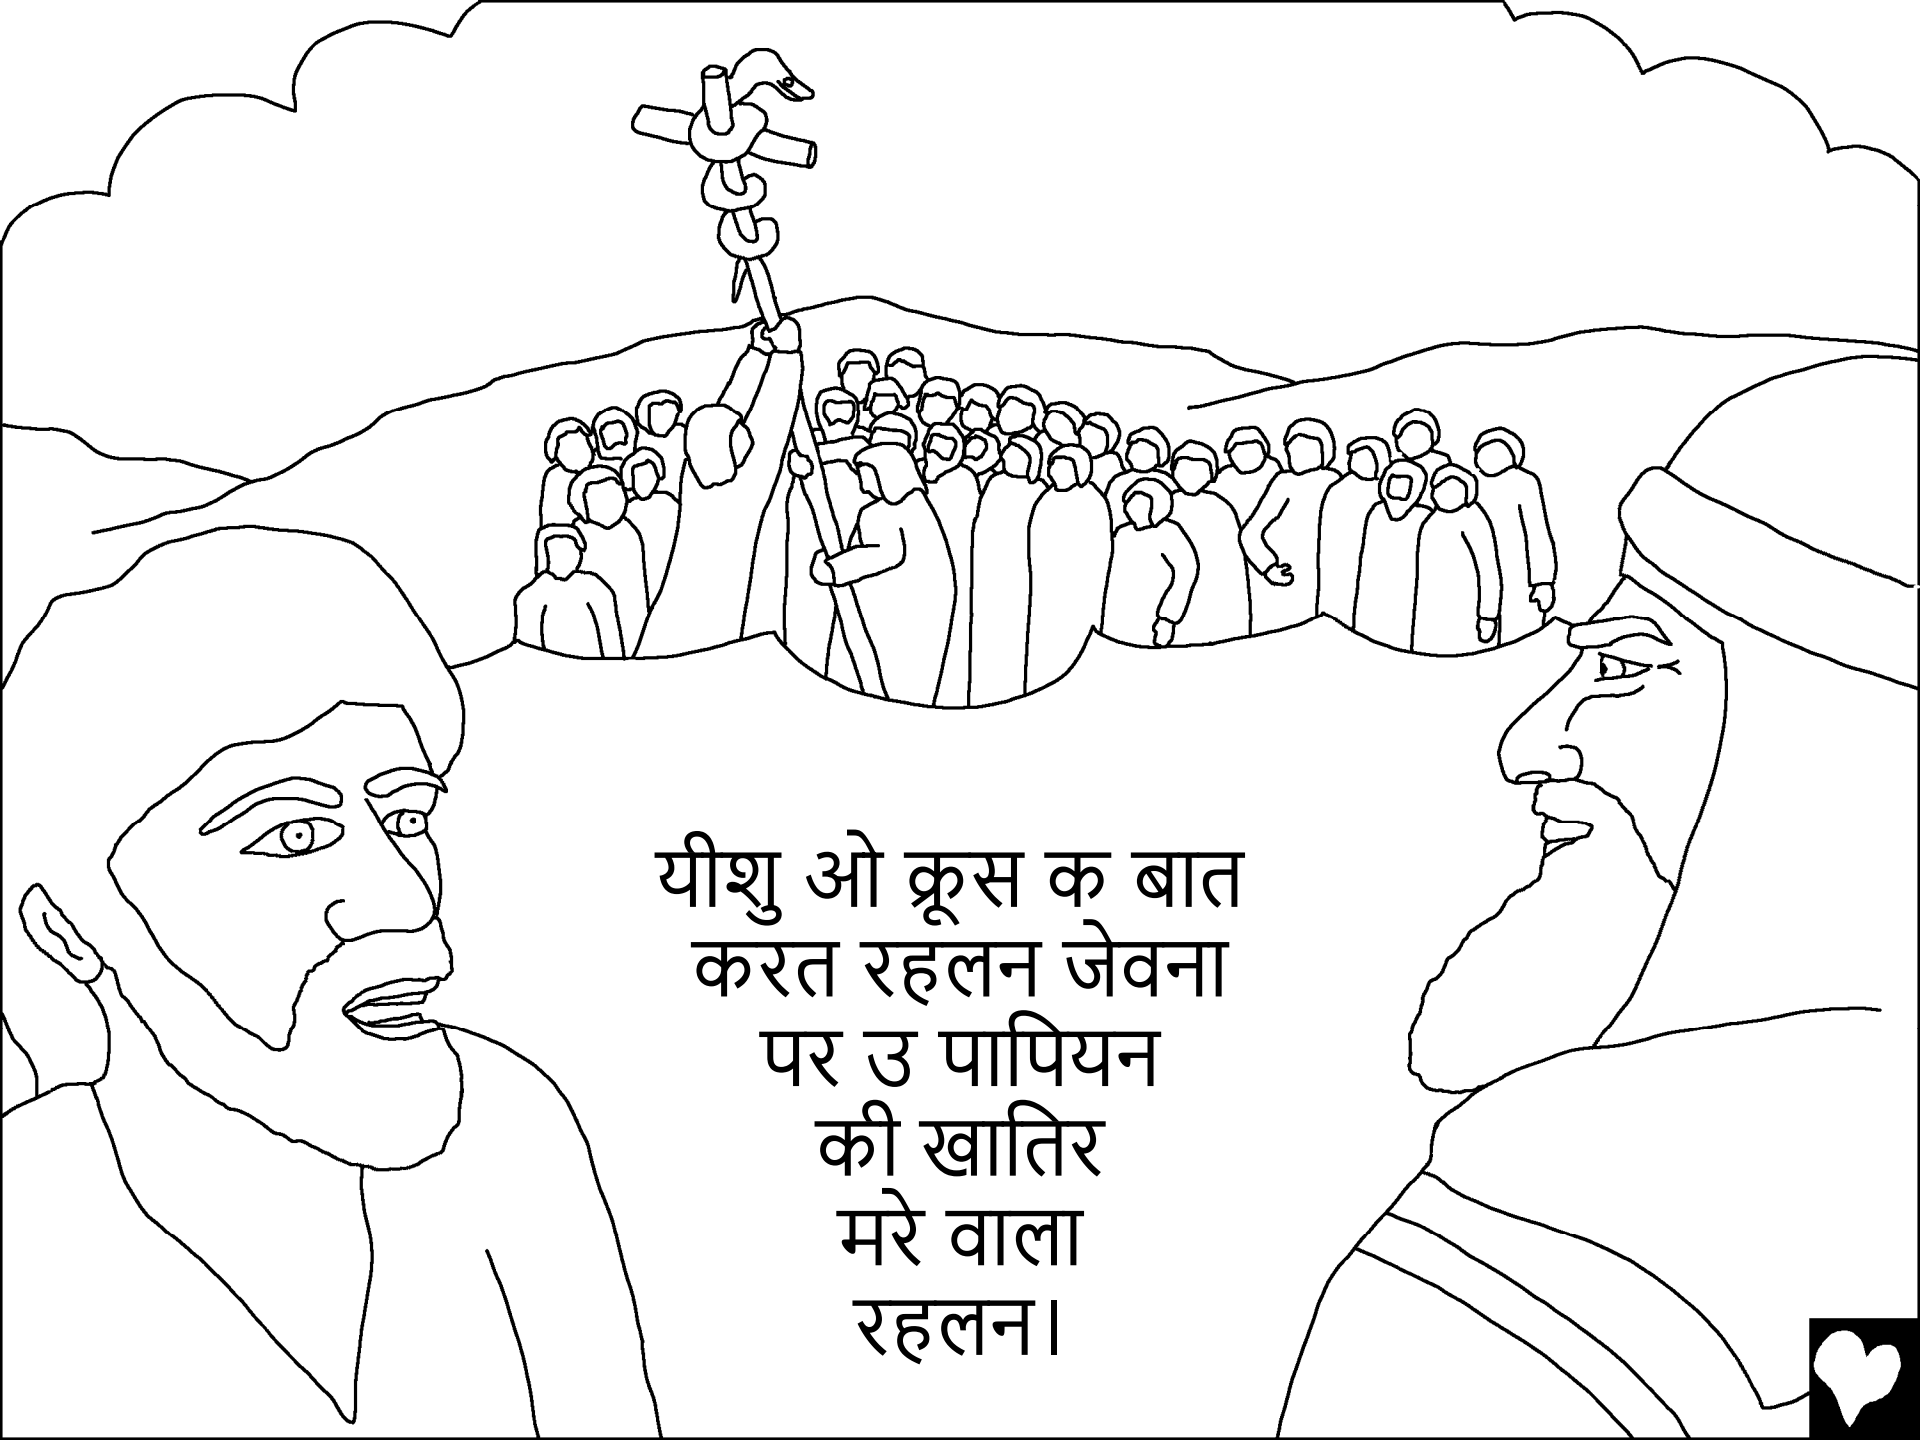 यीशु ओ क्रूस क बात
करत रहलन जेवना
पर उ पापियन
की खातिर
मरे वाला
रहलन।